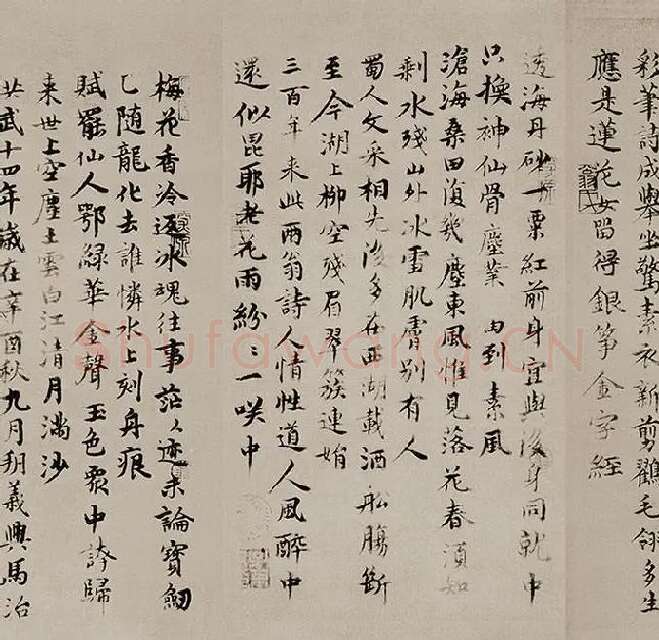 彩筆詩成舉坐驚素衣新剪鶴毛翎多生
應是蓮花女習得銀箏金字經
透海丹砂一粟紅前身宜與後身同就中
只換神仙骨塵業 到素風
滄海桑田復幾塵東風惟見落花春須知
剩水殘山外冰雪肌膚別有人
蜀人文采相先後多在西湖載酒船腸斷
至今湖上柳空殘眉翠簇連娟
三百年來此兩翁詩人情性道人風醉中
還似昆耶老花雨紛〻一咲中
梅花香冷返冰魂往事茫〻迹未論寶劒
已隨龍化去誰憐水上刻舟痕
賦罷仙人鄂綠華金聲玉色眾中誇歸
來世上空塵土雲白江清月滿沙
洪武十四年歲在辛酉秋九月朔義興馬治
Shufawang.CN